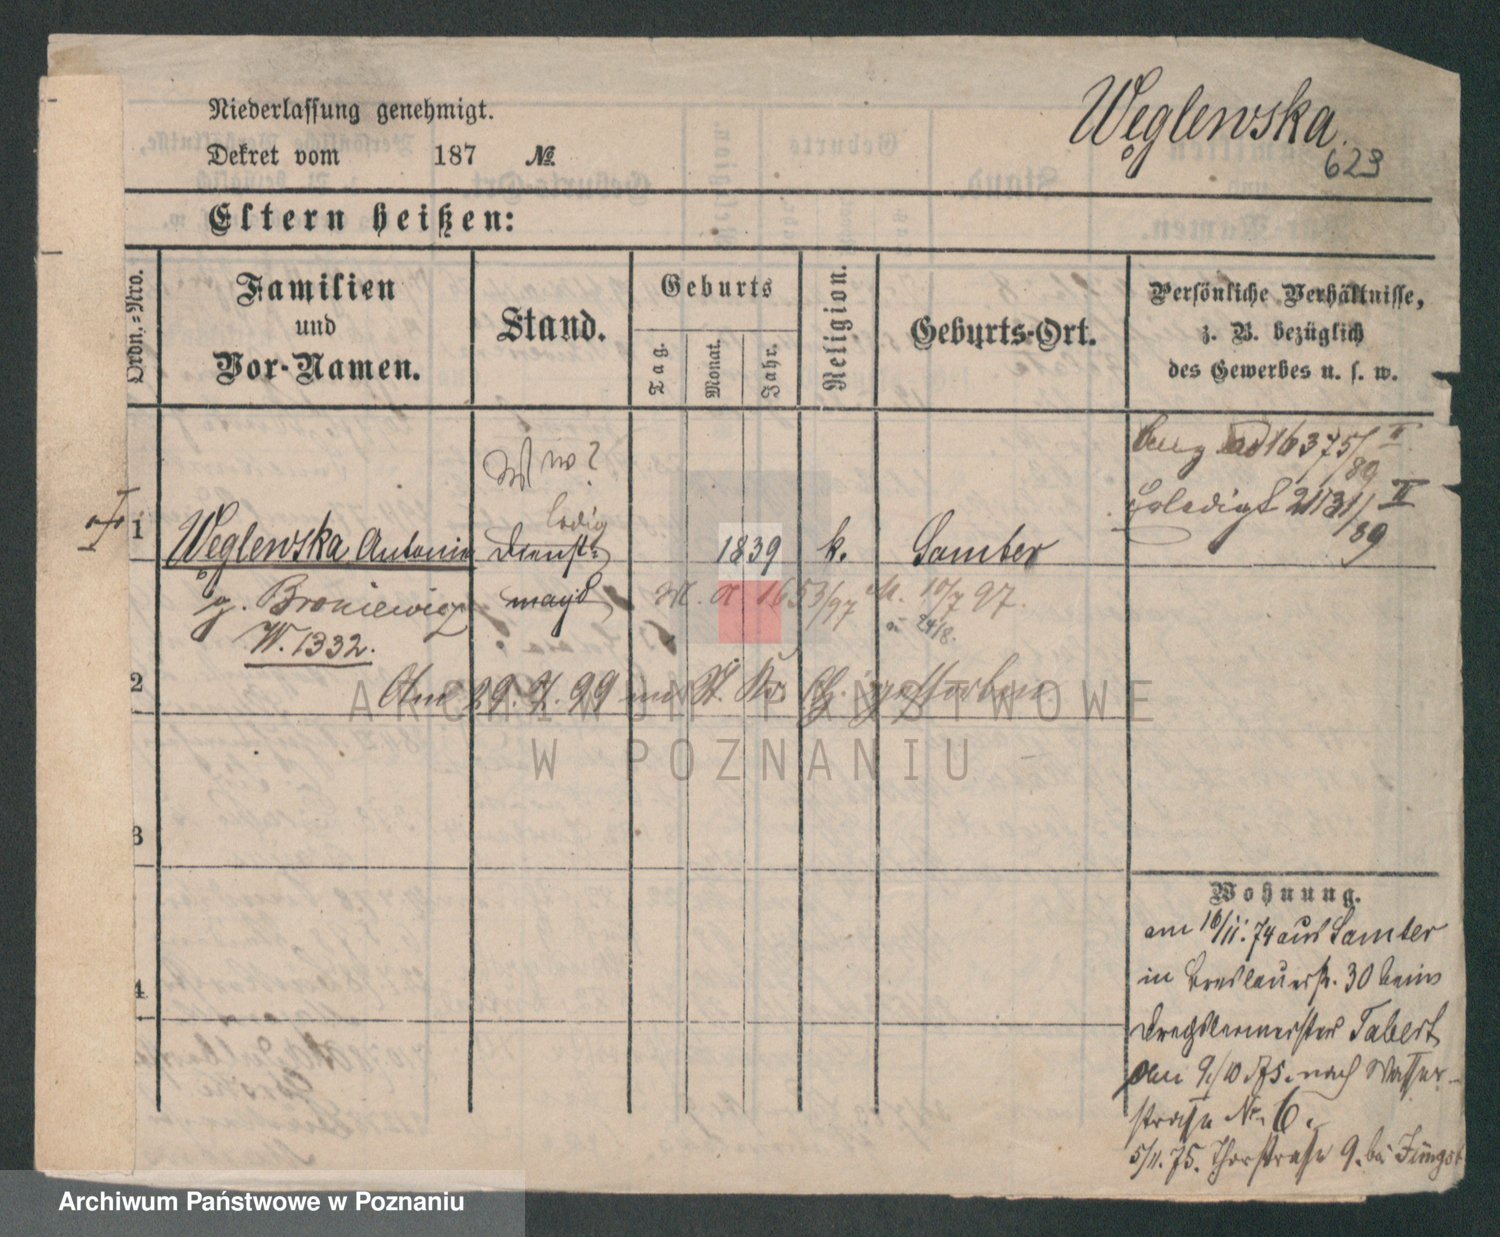 Węglewska.
623
Niederlassung genehmigt.
Dekret vom 187 №
Eltern heißen:
Ordn.-Nro.
Familien
und
Vor-Namen.
Stand.
Geburts
Tag.
Monat.
Jahr.
Religion.
Geburts-Ort.
Persönliche Verhältnisse,
z. B. bezüglich
des Gewerbes u. s. w.
ad 16375/II
89
Erledigt 21131/II
89
Ww?
ledig
1 Węglewska, Antonia Dienst- 1839 k. Samter
magd
g. Broniewicz
W. 1332.
M. 1653/97 M. 10/7 97.
24/8.
2
Am 29. 7. 99 gestorben
3
4
Wohnung.
am 16/11. 74 aus Samter
in Breslauerstr. 30 beim
Drechslermeister Tabert
Am 9/10 75. nach Wasser-
straße No. 6.
5/11. 75. Thorstraße 9. bei
ARCHIWUM PAŃSTWOWE
W POZNANIU
Archiwum Państwowe w Poznaniu